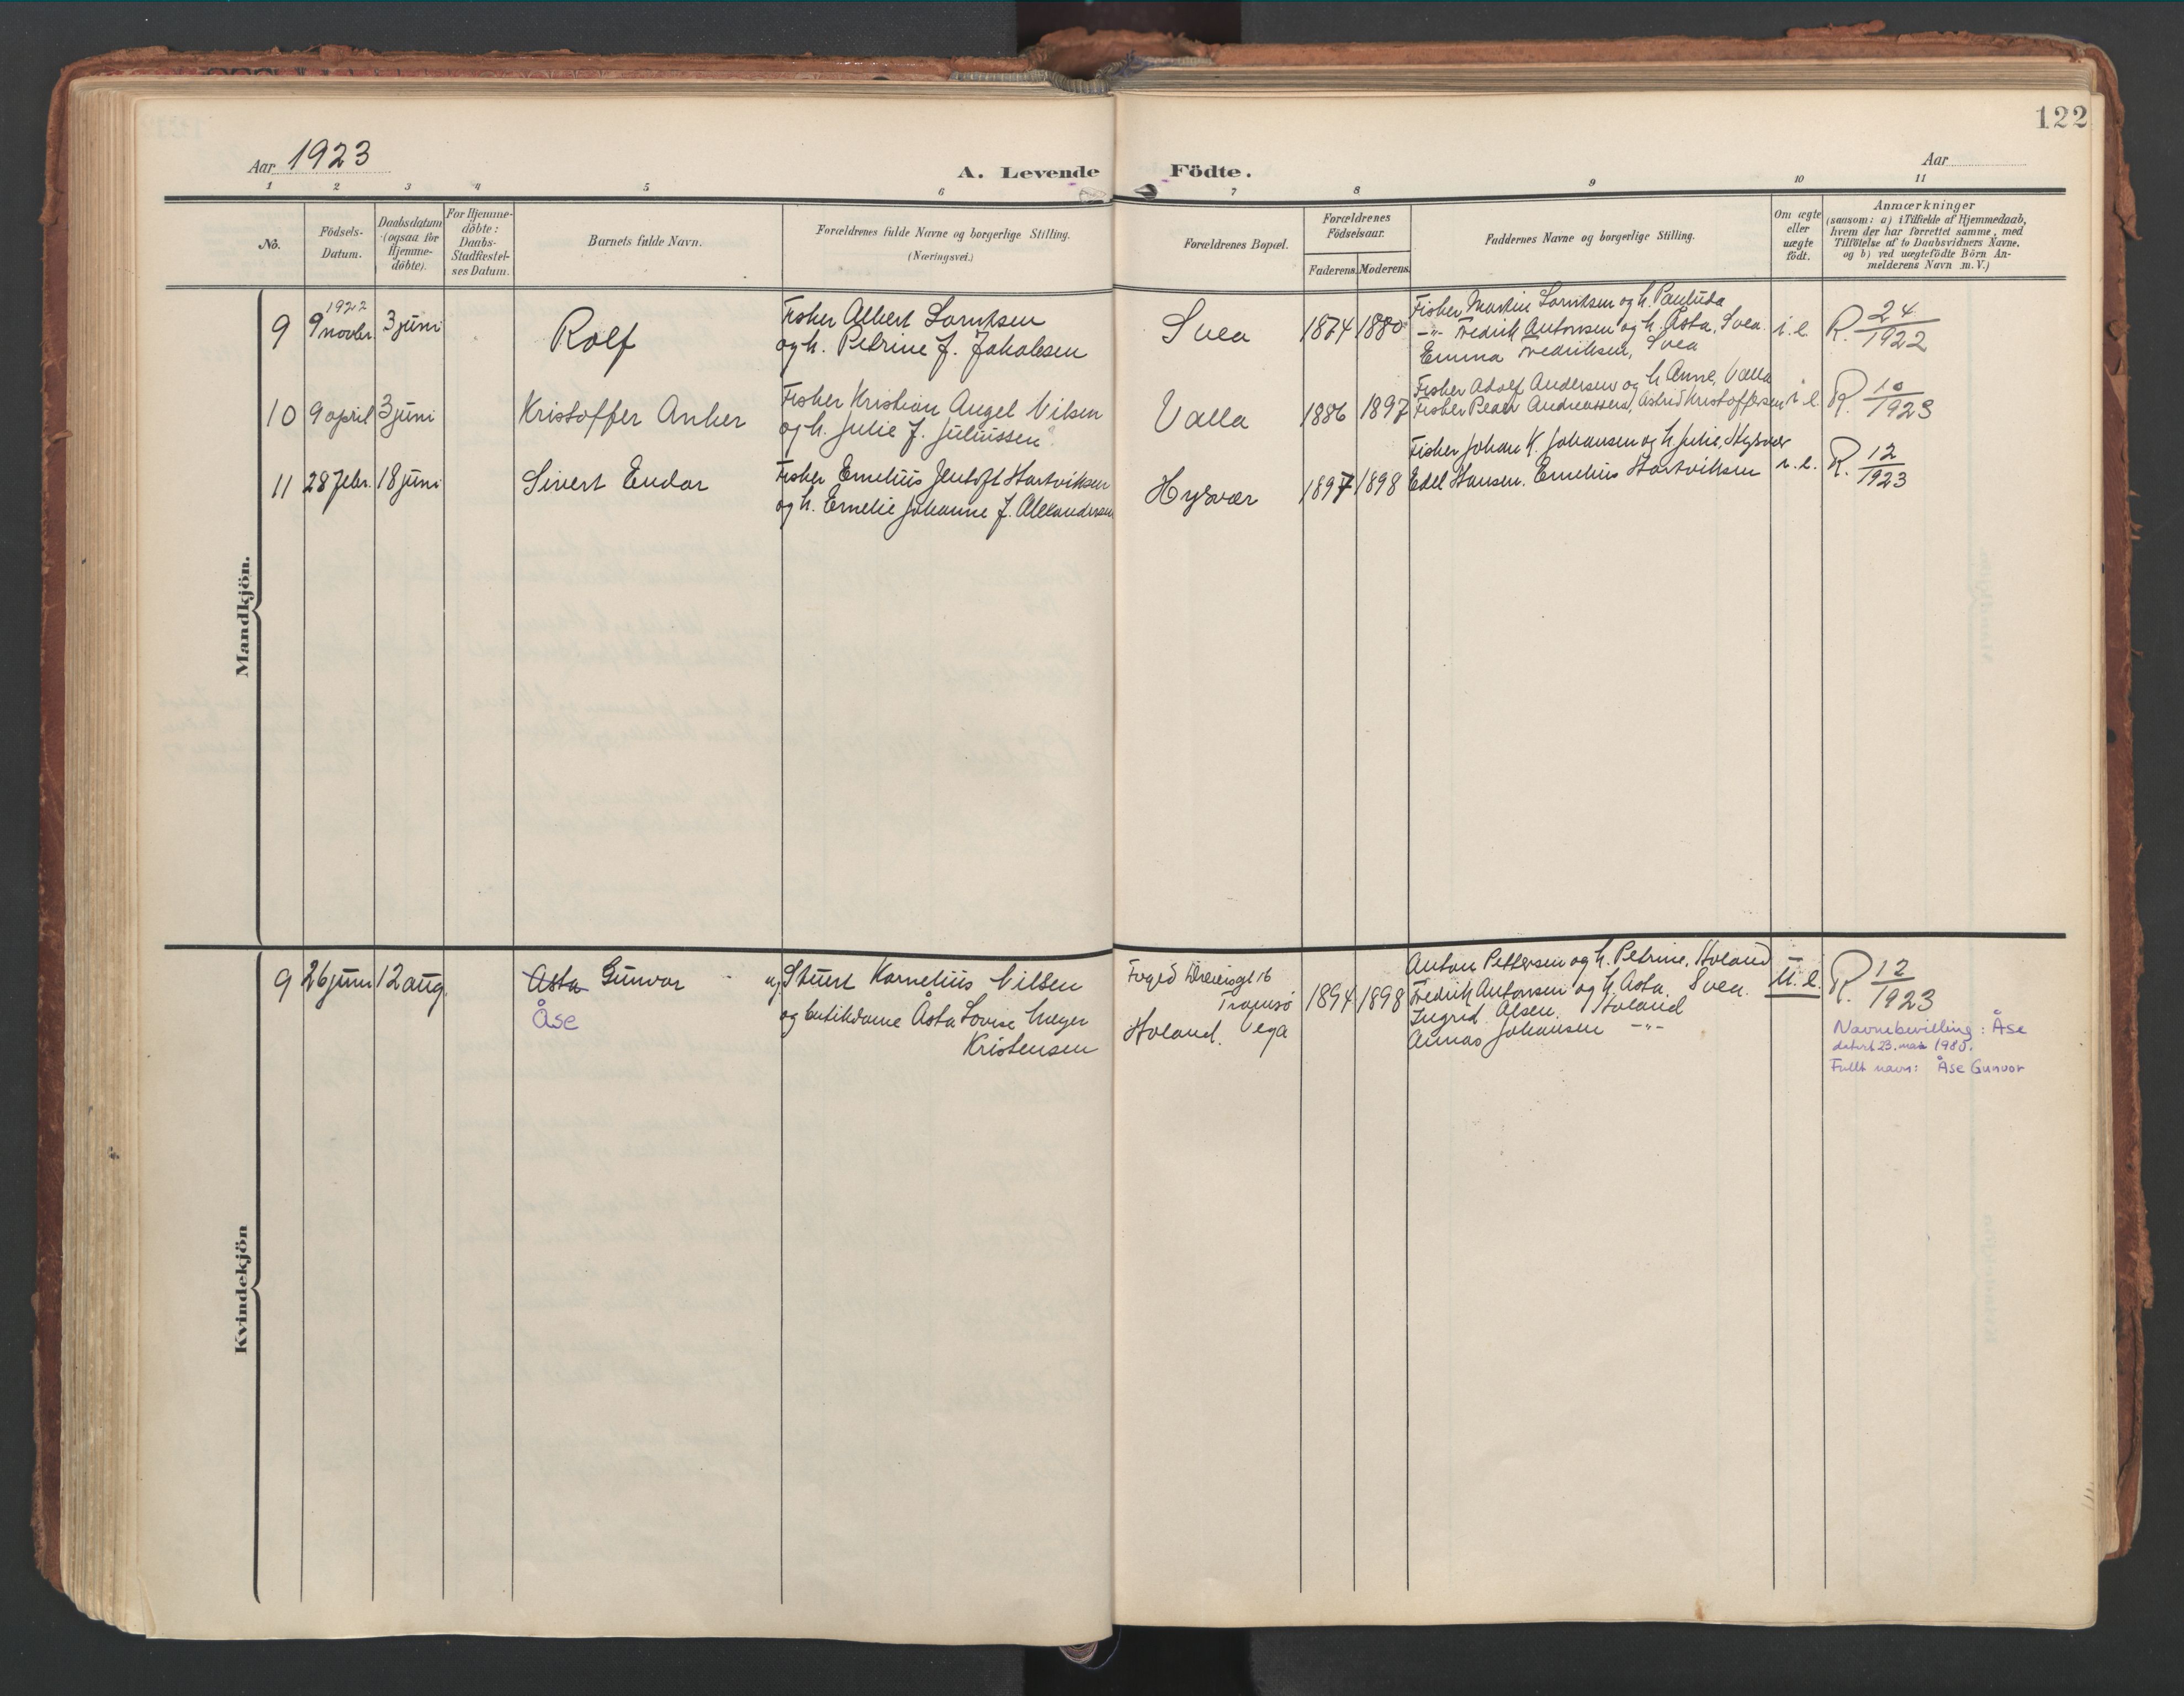 122
Aar 1923
A. Levende Födte.
Aar
1 2 3 4 5 6 7 8 9 10 11
No.
Födsels-Datum.
Daabsdatum (ogsaa for Hjemme-döbte).
For Hjemme-döbte: Daabs-Stadfæstel-ses Datum.
Barnets fulde Navn.
Forældrenes fulde Navne og borgerlige Stilling.
(Næringsvei.)
Forældrenes Bopæl.
Forældrenes Födselsaar.
Faderens. Moderens.
Faddernes Navne og borgerlige Stilling.
Om ægte eller uægte födt.
Anmærkninger
(saasom: a) i Tilfælde af Hjemmedaab,
hvem der har forrettet samme, med
Tilföielse af to Daabsvidners Navne.
og b) ved uægtefödte Börn An-
melderens Navn m. V.)
Mandkjön.
9
1922
9 novbr.
3 juni
Rolf
Fisker Albert Lorntsen
og h. Petrine f. Jakobsen
Svea
1874 1880
Fisker Martin Lorntsen og h.
-"- Fredrik Antonsen og h. Åsta, Svea.
Emma Fredriksen, Svea
i. e.
R. 24/1922
10
9 april
3 juni
Kristoffer Anker
Fisker Kristian Angel Nilsen
og h. Julie f. Juliussen
Valla
1886 1897
Fisker Adolf Andersen og h. Anne, Valla
Fisker Peder Andreassen, Astrid Kristoffersen
i. e.
R. 10/1923
11
28 febr.
18 juni
Sivert Endor
Fisker Emelius Jentoft Hartviksen
og h. Emelie Johanne f. Alexandersen
Hysvær
1897 1898
Fisker Johan K. Johansen og h. Julie, Hysvær
Edel Hansen. Emelius Hartviksen
i. e.
R. 12/1923
Kvindekjön
9
26 juni
12 aug.
Asta Gunvor
Åse
Kornelius Nilsen
og butikdame Åsta Lovise Meyer
Kristensen
Foged Dreiersgt 16
Tromsö
Holand. Vega
1894 1898
Anton Pettersen og h. Petrine, Holand
Fredrik Antonsen og h. Asta. Svea.
Ingrid Olsen. Holand
Annas Johansen -"-
U. e.
R. 12/1923
Navnebevilling: Åse
datert 23. mai 1980.
Fullt navn: Åse Gunvor